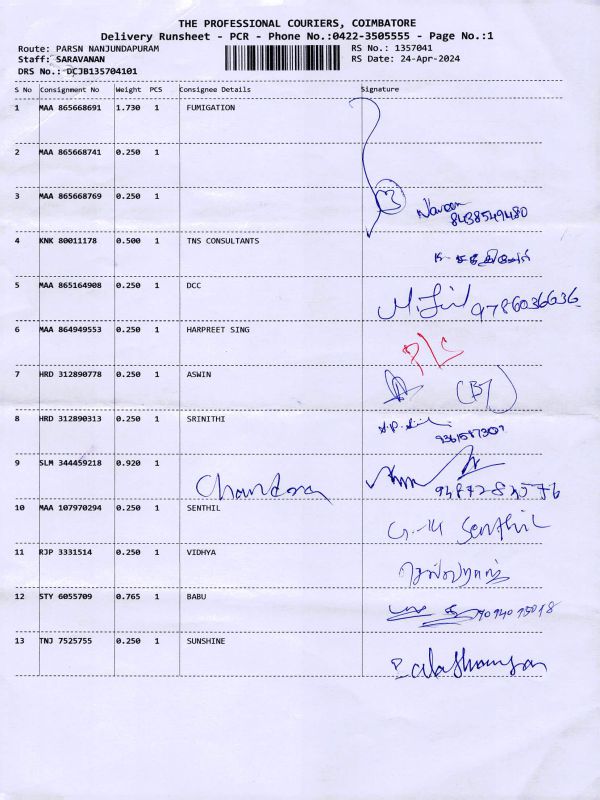 THE PROFESSIONAL COURIERS, COIMBATORE
Delivery Runsheet - PCR - Phone No.:0422-3505555 - Page No.:1
Route: PARSN NANJUNDAPURAM RS No.: 1357041
Staff: SARAVANAN RS Date: 24-Apr-2024
DRS No.: DCJB135704101
S No Consignment No Weight PCS Consignee Details Signature
1 MAA 865668691 1.730 1 FUMIGATION
2 MAA 865668741 0.250 1
3 MAA 865668769 0.250 1 Naveen
8438549480
4 KNK 80011178 0.500 1 TNS CONSULTANTS
5 MAA 865164908 0.250 1 DCC 9786036636
6 MAA 864949553 0.250 1 HARPREET SING
7 HRD 312890778 0.250 1 ASWIN
8 HRD 312890313 0.250 1 SRINITHI
9 SLM 344459218 0.920 1
Chandra
10 MAA 107970294 0.250 1 SENTHIL Senthil
11 RJP 3331514 0.250 1 VIDHYA
12 STY 6055709 0.765 1 BABU
13 TNJ 7525755 0.250 1 SUNSHINE